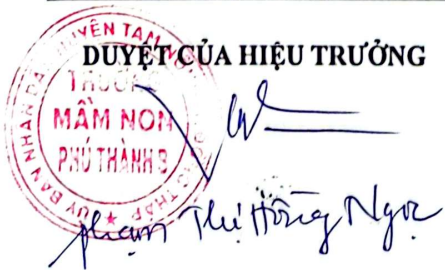 DUYỆT CỦA HIỆU TRƯỞNG
ỦY BAN NHÂN DÂN HUYỆN TAM NÔNG
TRƯỜNG
MẦM NON
PHÚ THÀNH B
Phạm Thị Hồng Ngọc